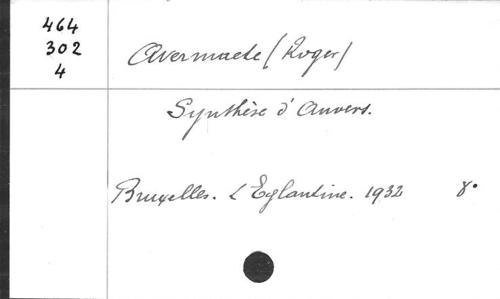 464
302
4
Avermaete (Roger)
Synthèse d'Anvers.
Bruxelles. L'Eglantine. 1932 8°